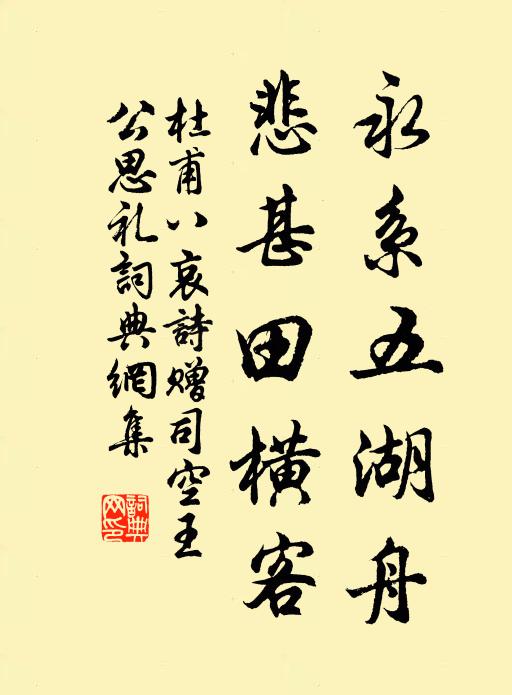 永系五湖舟
悲甚田横客
杜甫八哀詩赠司空王
公思礼詞典網集
詞典網印